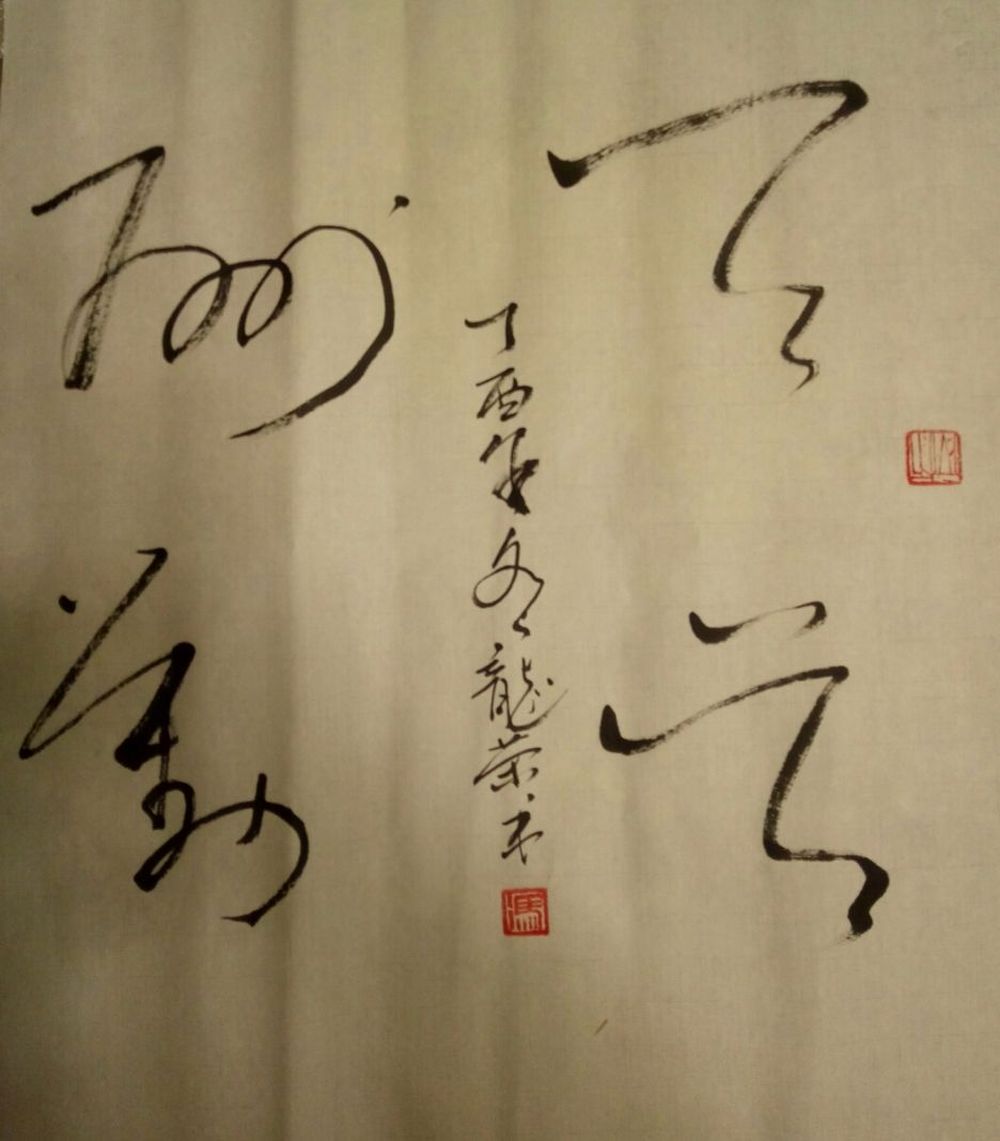 天道
酬勤
丁酉年冬龍榮